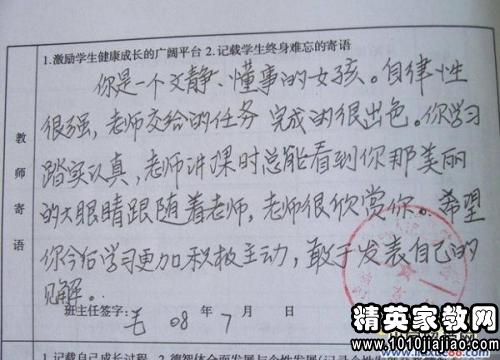 1.激励学生健康成长的广阔平台 2.记载学生终身难忘的寄语
教师寄语
你是一个文静、懂事的女孩。自律性
很强,老师交给的任务完成的很出色。你学习
踏实认真,老师讲课时总能看到你那美丽
的大眼睛跟随着老师,老师很欣赏你。希望
你今后学习更加积极主动,敢于发表自己的
见解。
班主任签字: 毛 08 年 7 月 日
精英家教网
www.1010jiajiao.com
1.记载自己成长过程 2.德智体全面发展与个性发展